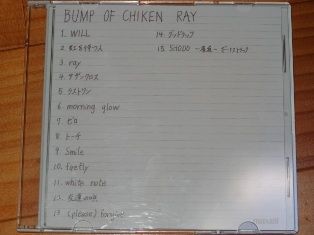 BUMP OF CHIKEN RAY
1. WILL
2. 虹を待つ人
3. ray
4. サザンクロス
5. ラストワン
6. morning glow
7. ゼロ
8. トーチ
9. Smile
10. firefly
11. white note
12. 友達の唄
13. (please) forgive
14. グッドラック
15.
maxell